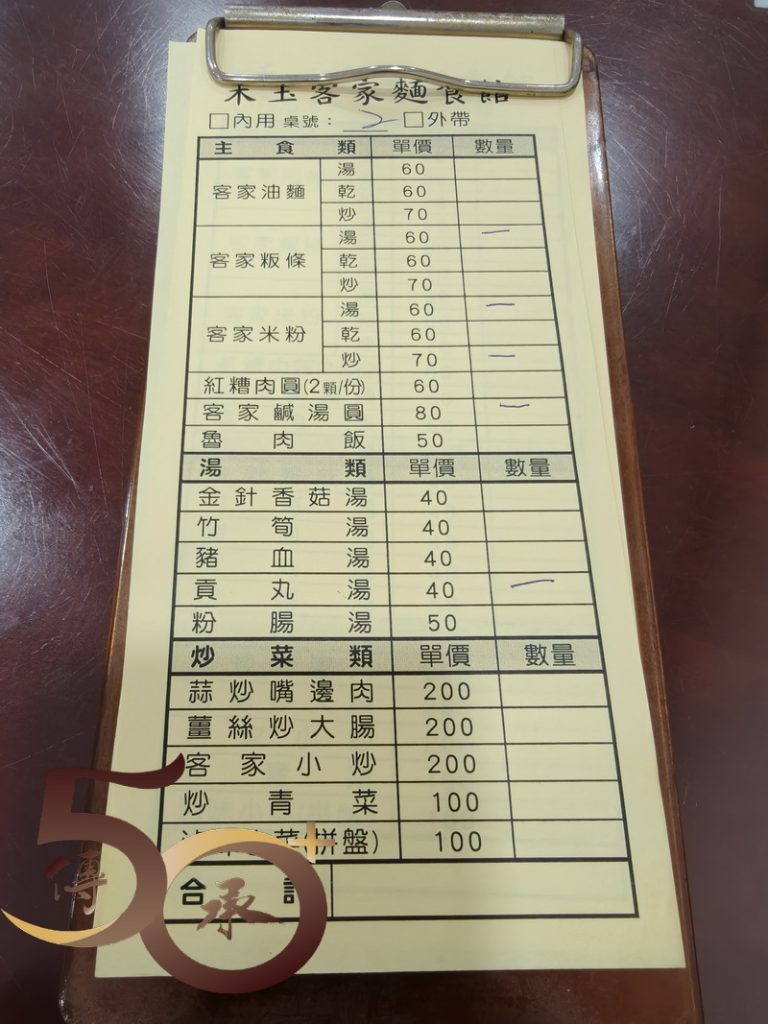 玉客家麵食館
□內用 桌號： 2 □外帶
主食類 單價 數量
客家油麵 湯 60
乾 60
炒 70
客家粄條 湯 60 一
乾 60
炒 70
客家米粉 湯 60 一
乾 60
炒 70 一
紅糟肉圓(2顆/份) 60
客家鹹湯圓 80 一
魯肉飯 50
湯類 單價 數量
金針香菇湯 40
竹筍湯 40
豬血湯 40
貢丸湯 40 一
粉腸湯 50
炒菜類 單價 數量
蒜炒嘴邊肉 200
薑絲炒大腸 200
客家小炒 200
炒青菜 100
菜(拼盤) 100
合計
50+
傳承